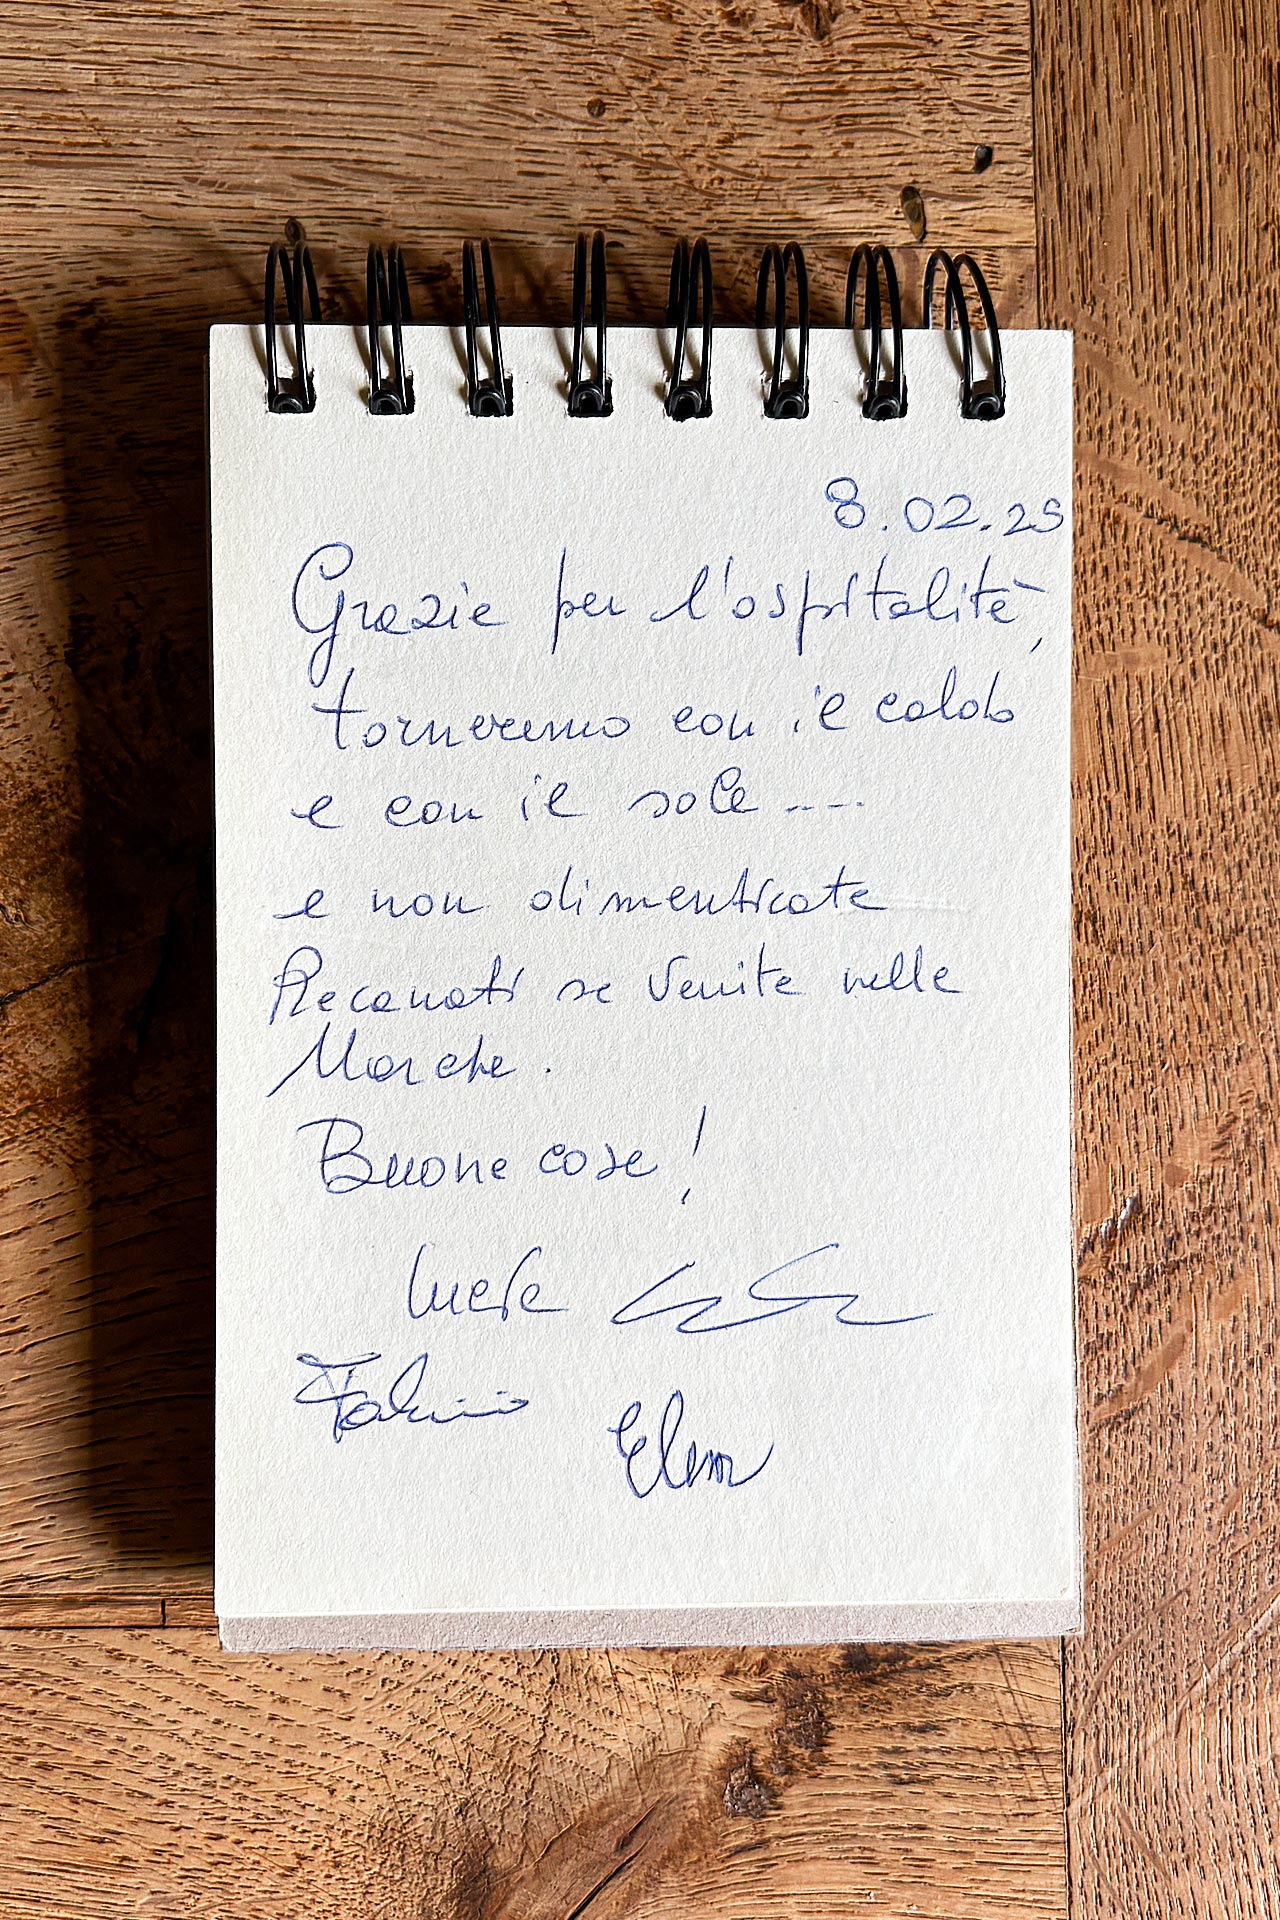 8.02.25
Grazie per l'ospitalità,
torneremo con il caldo
e con il sole ....
e non dimenticate
Recanati se venite nelle
Marche.
Buone cose!
Fabrizio
Elena